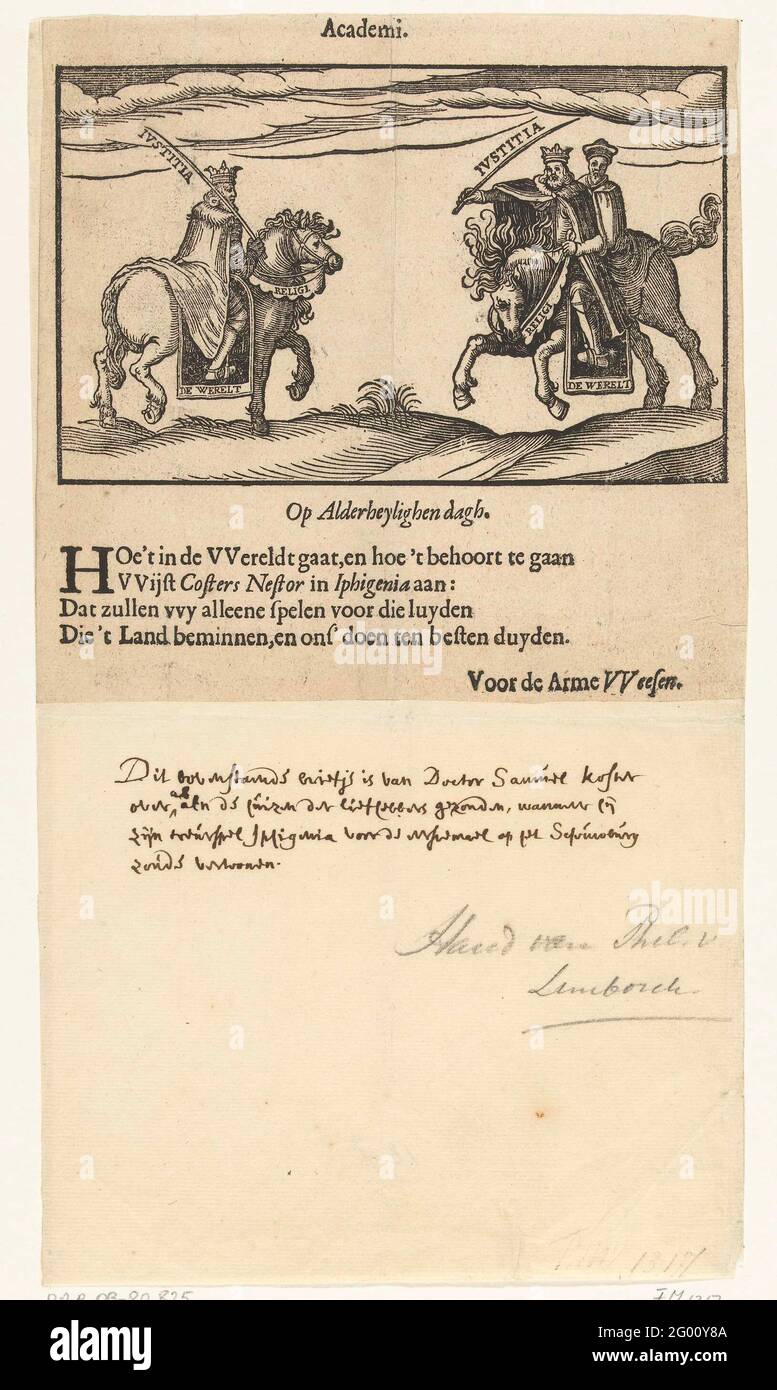 Academi.
IVSTITIA
IVSTITIA
RELIGI
RELIGI
DE WERELT
DE WERELT
Op Alderheylighen dagh.
HOe't in de VVereldt gaat, en hoe 't behoort te gaan
VVijſt Coſters Neſtor in Iphigenia aan:
Dat zullen vvy alleene ſpelen voor die luyden
Die 't Land beminnen, en onſ' doen ten beſten duyden.
Voor de Arme VVeeſen.
Dit bovenstaende briefje is van Doctor Samuel Koster
over al aen de huizen der liefhebbers gezonden, wanneer hij
zijn treurspel Iphigenia voor de eerstemael op het Schouwburg
zoude vertoonen.
Hand van Phil. v
Limborch.
alamy
alamy
alamy
alamy
Image ID: 2G00Y8A
www.alamy.com